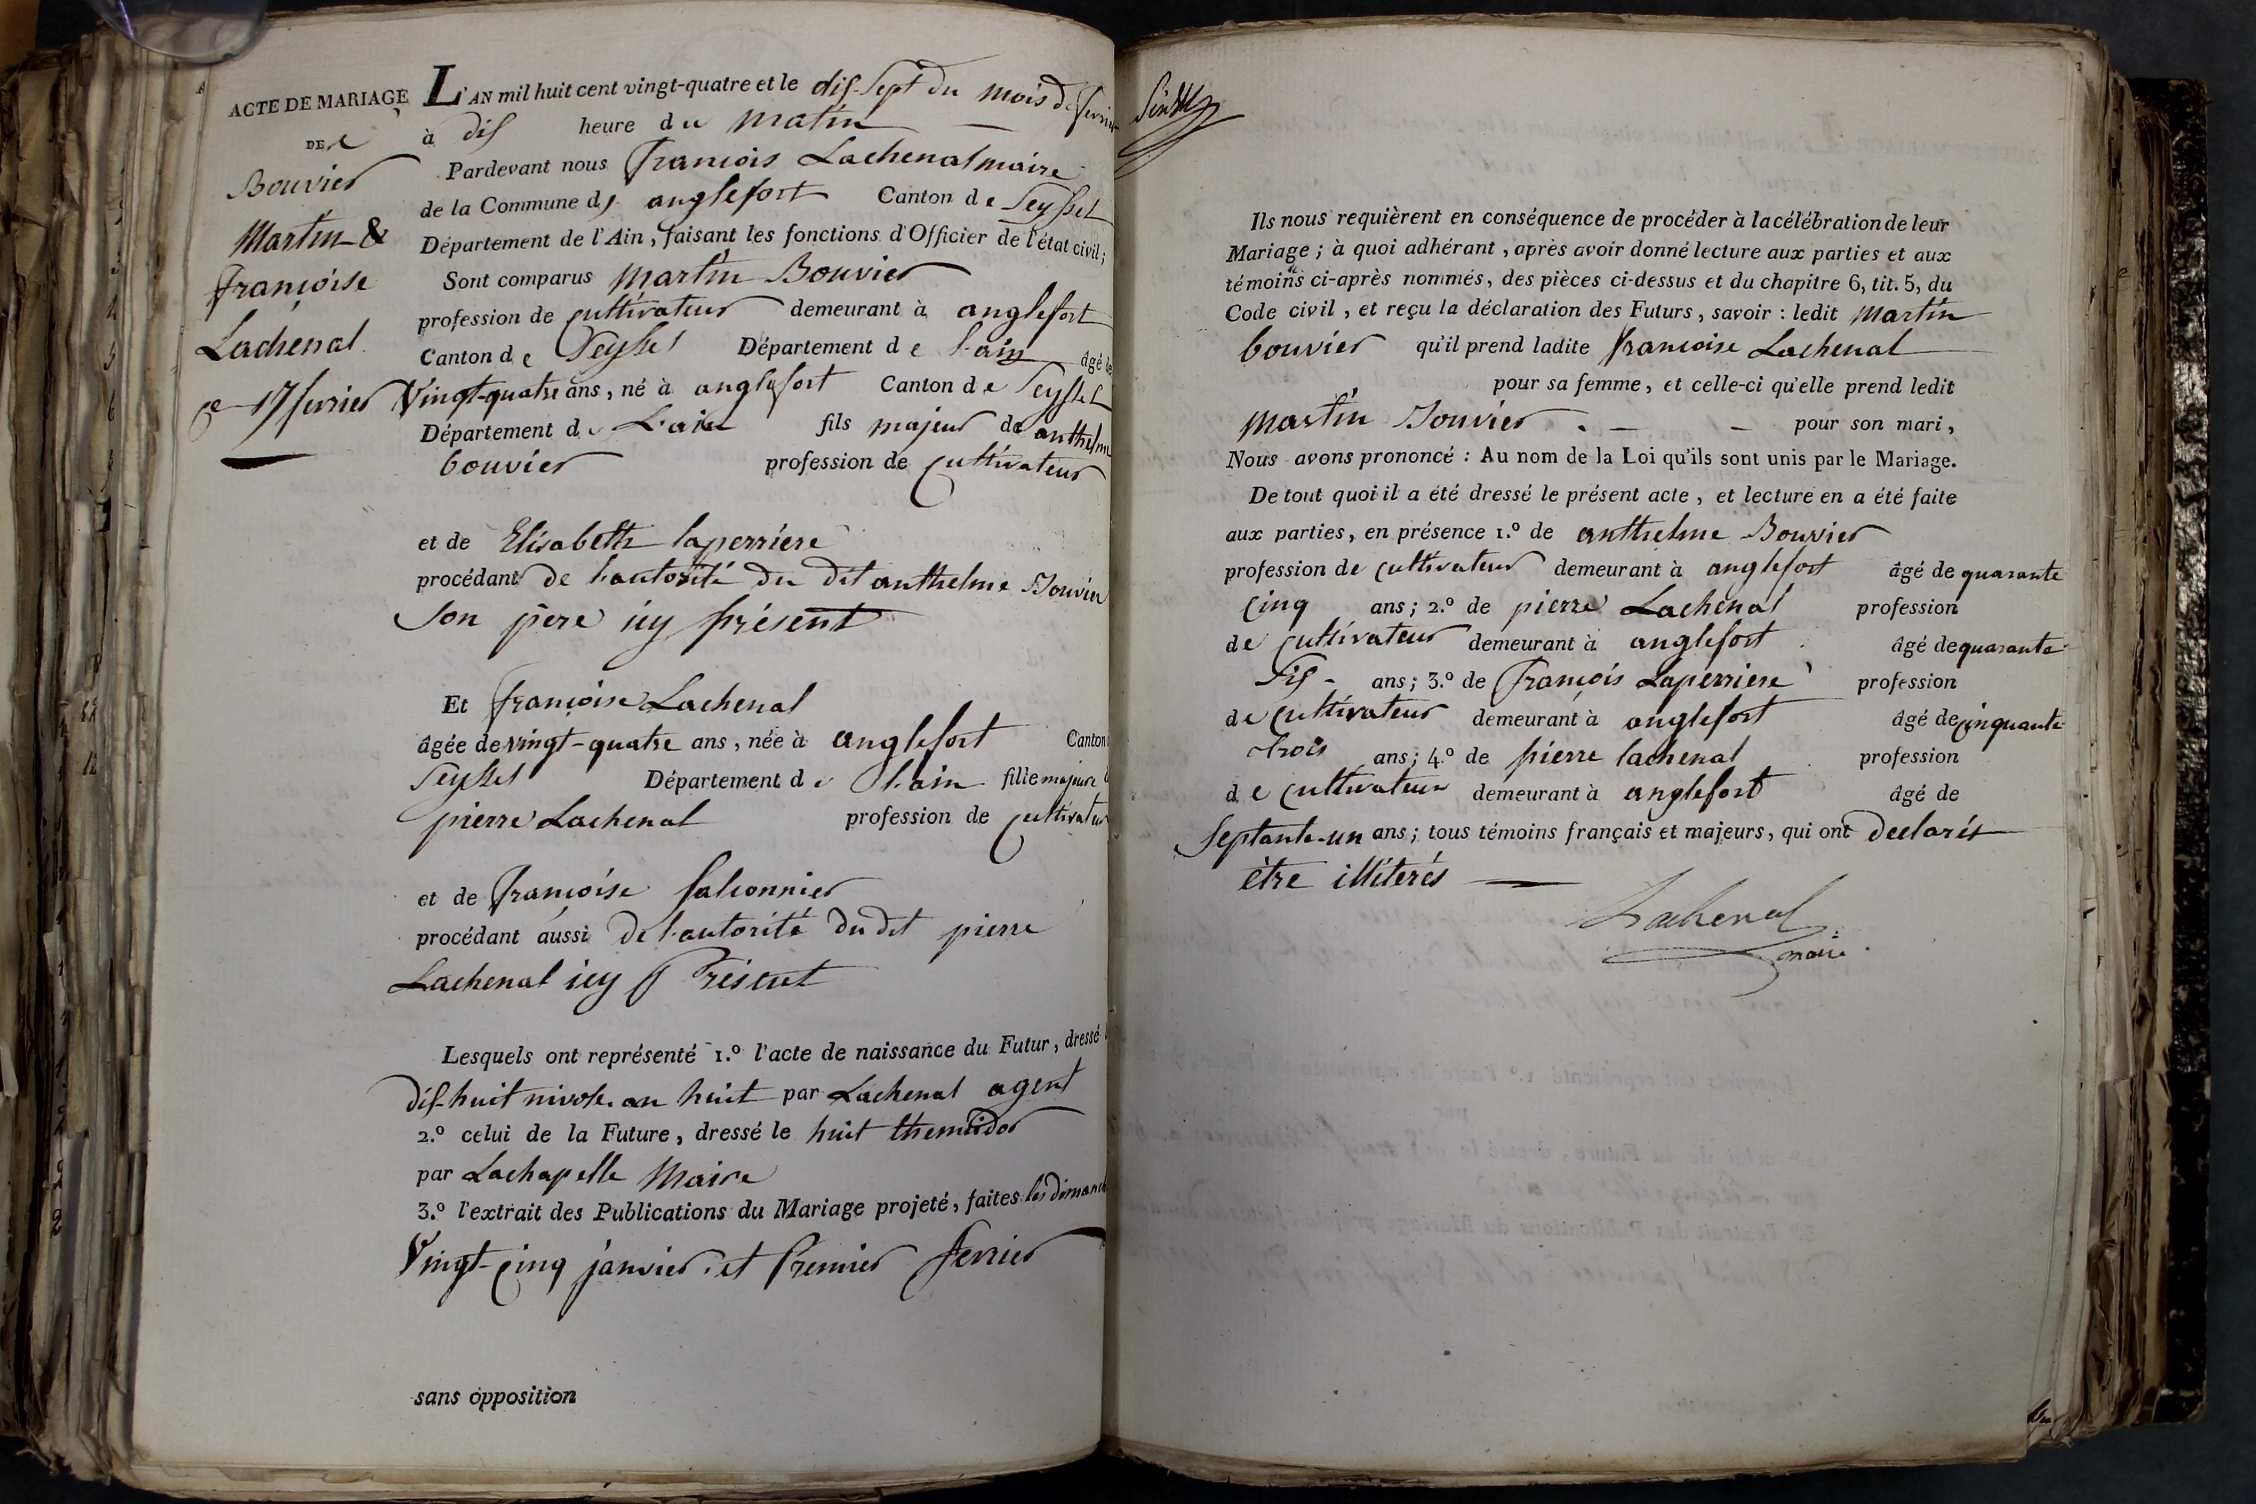 ACTE DE MARIAGE
DE
Bouvier
Martin &
françoise
Lachenal
17 fevrier
L'AN mil huit cent vingt-quatre et le dis-sept du mois de fevrier
à dis heure du matin
Pardevant nous françois Lachenal maire
de la Commune d' anglefort Canton de Seyssel
Département de l'Ain, faisant les fonctions d'Officier de l'état civil;
Sont comparus Martin Bouvier
profession de cultivateur demeurant à anglefort
Canton de Seyssel Département de l'ain âgé de
Vingt-quatre ans, né à anglefort Canton de Seyssel
Département de L'ain fils majeur de anthelme
bouvier profession de cultivateur
et de Elisabeth laperriere
procédant de l'autorité du dit anthelme Bouvier
son père icy présent
Et françoise Lachenal
âgée de vingt-quatre ans, née à anglefort Canton
Seyssel Département de l'ain fille majeure
pierre Lachenal profession de cultivateur
et de françoise falconnier
procédant aussi de l'autorité du dit pierre
Lachenal icy Présent
Lesquels ont représenté 1.º l'acte de naissance du Futur, dressé
dis-huit nivose an huit par Lachenal agent
2.º celui de la Future, dressé le huit thermidor
par Lachapelle Maire
3.º l'extrait des Publications du Mariage projeté, faites les dimanch
Vingt-cinq janvier et Premier fevrier
sans opposition
Ils nous requièrent en conséquence de procéder à la célébration de leur
Mariage; à quoi adhérant, après avoir donné lecture aux parties et aux
témoins ci-après nommés, des pièces ci-dessus et du chapitre 6, tit. 5, du
Code civil, et reçu la déclaration des Futurs, savoir: ledit Martin
bouvier qu'il prend ladite françoise Lachenal
pour sa femme, et celle-ci qu'elle prend ledit
Martin Bouvier pour son mari,
Nous avons prononcé: Au nom de la Loi qu'ils sont unis par le Mariage.
De tout quoi il a été dressé le présent acte, et lecture en a été faite
aux parties, en présence 1.º de anthelme Bouvier
profession de cultivateur demeurant à anglefort âgé de quarante
cinq ans; 2.º de pierre Lachenal profession
de cultivateur demeurant à anglefort âgé de quarante
sis ans; 3.º de françois Laperriere profession
de cultivateur demeurant à anglefort âgé de cinquante
trois ans; 4.º de pierre lachenal profession
de cultivateur demeurant à anglefort âgé de
Septante-un ans; tous témoins français et majeurs, qui ont declarés
être illiterés
Lachenal
maire